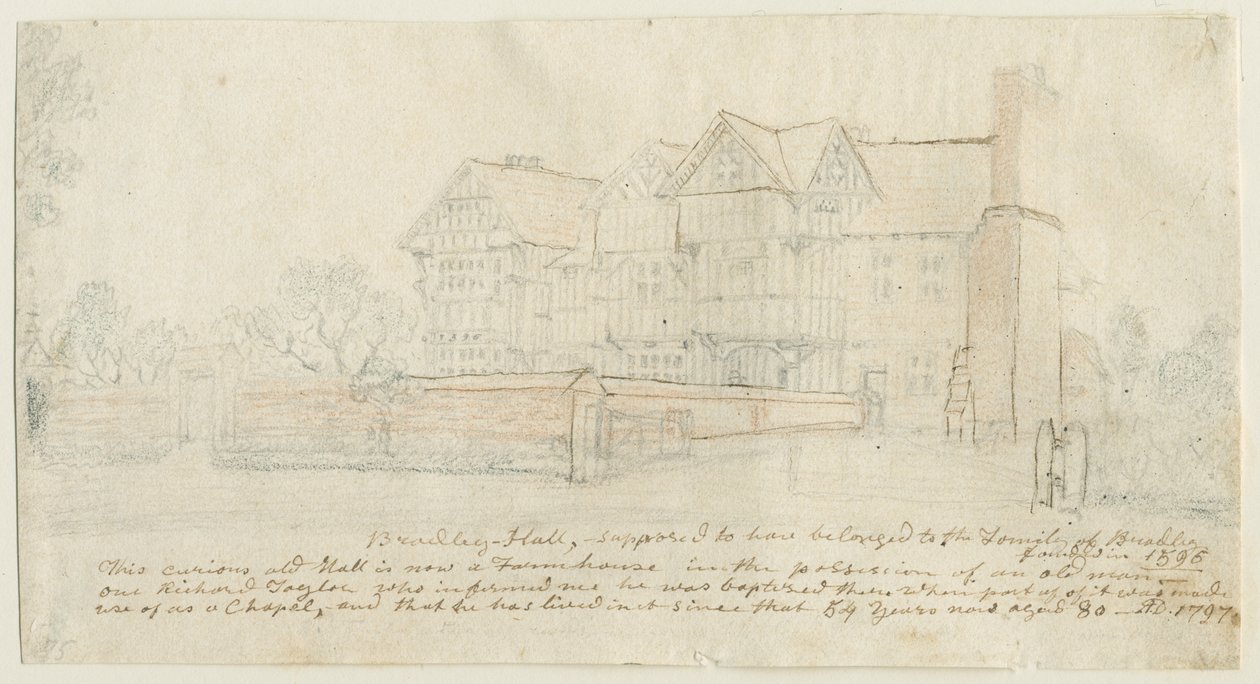 1596
Bradley-Hall, - supposed to have belonged to the Family of Bradley
founded in 1596
This curious old Hall is now a Farmhouse in the possession of an old man
one Richard Taylor who informed me he was baptized there when part of it was made
use of as a Chapel, - and that he has lived in it since that 54 Years now aged 80 - AD. 1797.
75